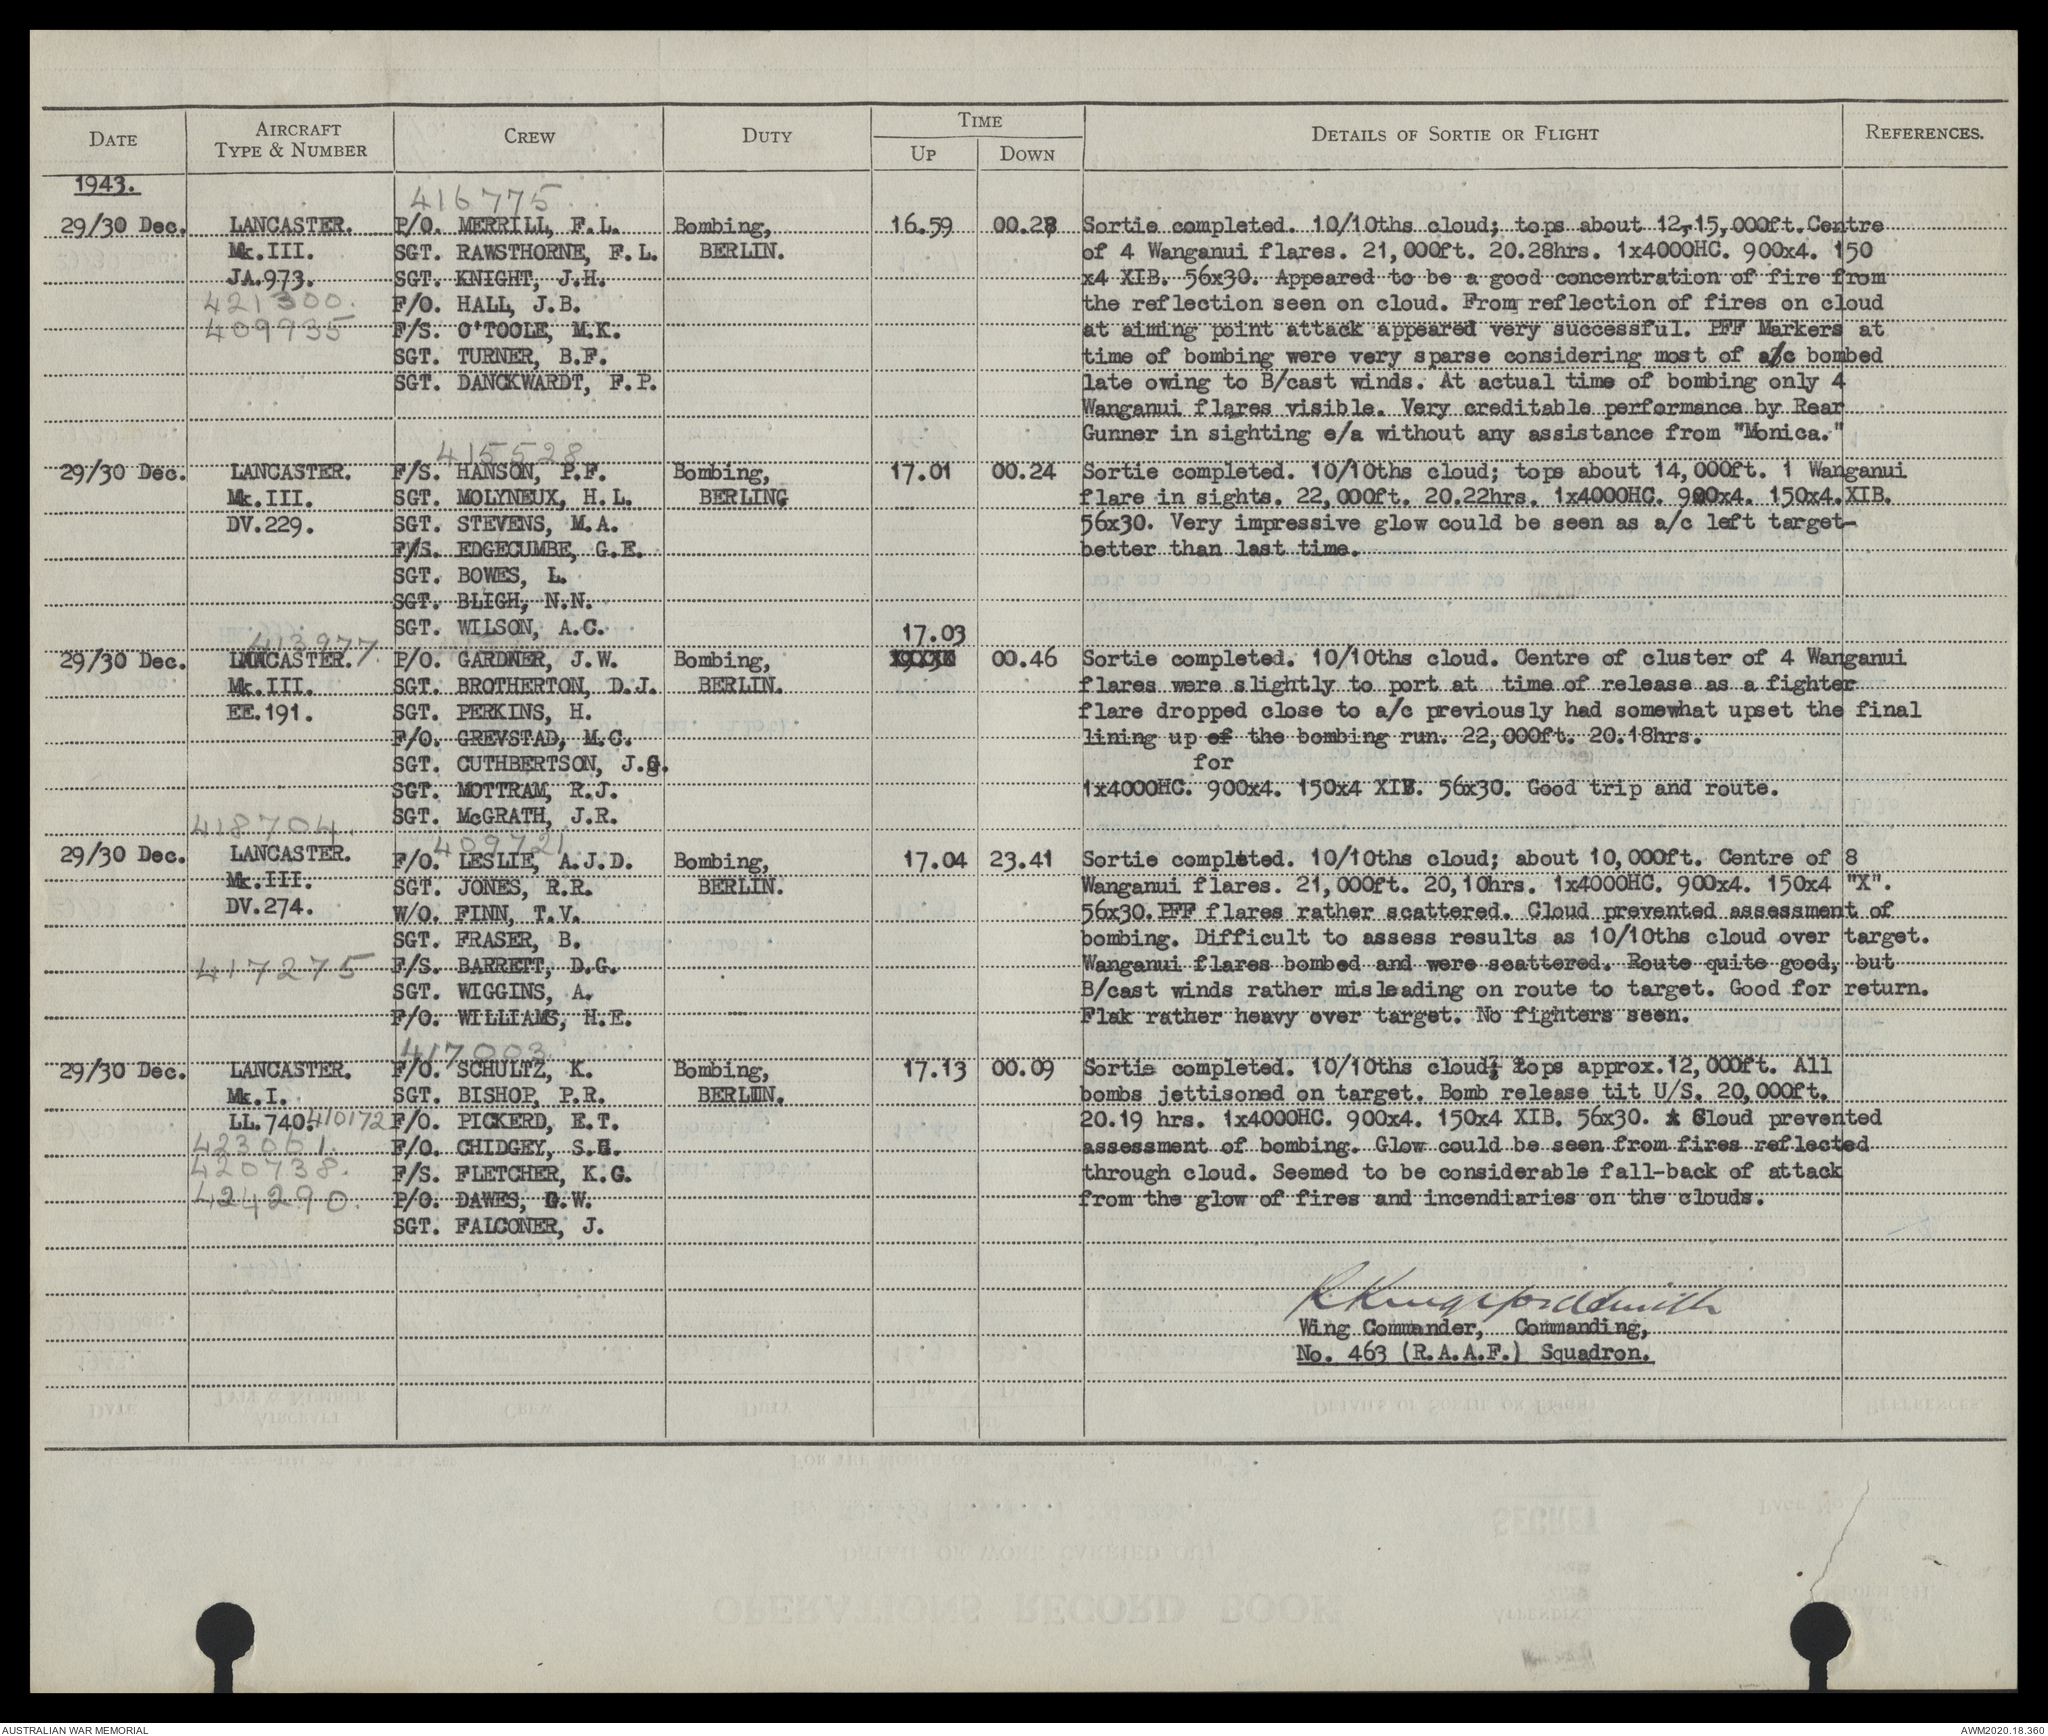 DATE AIRCRAFT TYPE & NUMBER CREW DUTY TIME UP DOWN DETAILS OF SORTIE OR FLIGHT REFERENCES.
1943.
416775
29/30 Dec. LANCASTER. P/O. MERRILL, F.L. Bombing, 16.59 00.28 Sortie completed. 10/10ths cloud; tops about 12,-15,000ft. Centre
Mk.III. SGT. RAWSTHORNE, F.L. BERLIN. of 4 Wanganui flares. 21,000ft. 20.28hrs. 1x4000HC. 900x4. 150
JA.973. SGT. KNIGHT, J.H. x4 XIB. 56x30. Appeared to be a good concentration of fire from
421300. F/O. HALL, J.B. the reflection seen on cloud. From reflection of fires on cloud
409935 F/S. O'TOOLE, M.K. at aiming point attack appeared very successful. PFF Markers at
SGT. TURNER, B.F. time of bombing were very sparse considering most of a/c bombed
SGT. DANCKWARDT, F.P. late owing to B/cast winds. At actual time of bombing only 4
Wanganui flares visible. Very creditable performance by Rear
Gunner in sighting e/a without any assistance from "Monica."
415528
29/30 Dec. LANCASTER. F/S. HANSON, P.F. Bombing, 17.01 00.24 Sortie completed. 10/10ths cloud; tops about 14,000ft. 1 Wanganui
Mk.III. SGT. MOLYNEUX, H.L. BERLING flare in sights. 22,000ft. 20.22hrs. 1x4000HC. 900x4. 150x4.XIB.
DV.229. SGT. STEVENS, M.A. 56x30. Very impressive glow could be seen as a/c left target-
F/S. EDGECUMBE, G.E. better than last time.
SGT. BOWES, L.
SGT. BLIGH, N.N.
SGT. WILSON, A.C. 17.03
413977
29/30 Dec. LANCASTER. P/O. GARDNER, J.W. Bombing, 00.46 Sortie completed. 10/10ths cloud. Centre of cluster of 4 Wanganui
Mk.III. SGT. BROTHERTON, D.J. BERLIN. flares were slightly to port at time of release as a fighter
EE.191. SGT. PERKINS, H. flare dropped close to a/c previously had somewhat upset the final
F/O. GREVSTAD, M.C. lining up of the bombing run. 22,000ft. 20.18hrs.
SGT. CUTHBERTSON, J.G. for
SGT. MOTTRAM, R.J. 1x4000HC. 900x4. 150x4 XIB. 56x30. Good trip and route.
SGT. McGRATH, J.R.
418704. 409721
29/30 Dec. LANCASTER. F/O. LESLIE, A.J.D. Bombing, 17.04 23.41 Sortie completed. 10/10ths cloud; about 10,000ft. Centre of 8
Mk.III. SGT. JONES, R.R. BERLIN. Wanganui flares. 21,000ft. 20,10hrs. 1x4000HC. 900x4. 150x4 "X".
DV.274. W/O. FINN, T.V. 56x30. PFF flares rather scattered. Cloud prevented assessment of
SGT. FRASER, B. bombing. Difficult to assess results as 10/10ths cloud over target.
417275 F/S. BARRETT, D.G. Wanganui flares bombed and were scattered. Route quite good, but
SGT. WIGGINS, A. B/cast winds rather misleading on route to target. Good for return.
F/O. WILLIAMS, H.E. Flak rather heavy over target. No fighters seen.
417003
29/30 Dec. LANCASTER. F/O. SCHULTZ, K. Bombing, 17.13 00.09 Sortie completed. 10/10ths cloud; tops approx.12,000ft. All
Mk.I. SGT. BISHOP, P.R. BERLIN. bombs jettisoned on target. Bomb release tit U/S. 20,000ft.
LL.740. 410172 F/O. PICKERD, E.T. 20.19 hrs. 1x4000HC. 900x4. 150x4 XIB. 56x30. Cloud prevented
423061. F/O. CHIDGEY, S.H. assessment of bombing. Glow could be seen from fires reflected
420738. F/S. FLETCHER, K.G. through cloud. Seemed to be considerable fall-back of attack
424290. P/O. DAWES, G.W. from the glow of fires and incendiaries on the clouds.
SGT. FALCONER, J.
R Kingsford Smith
Wing Commander, Commanding,
No. 463 (R.A.A.F.) Squadron.
AUSTRALIAN WAR MEMORIAL AWM2020.18.360